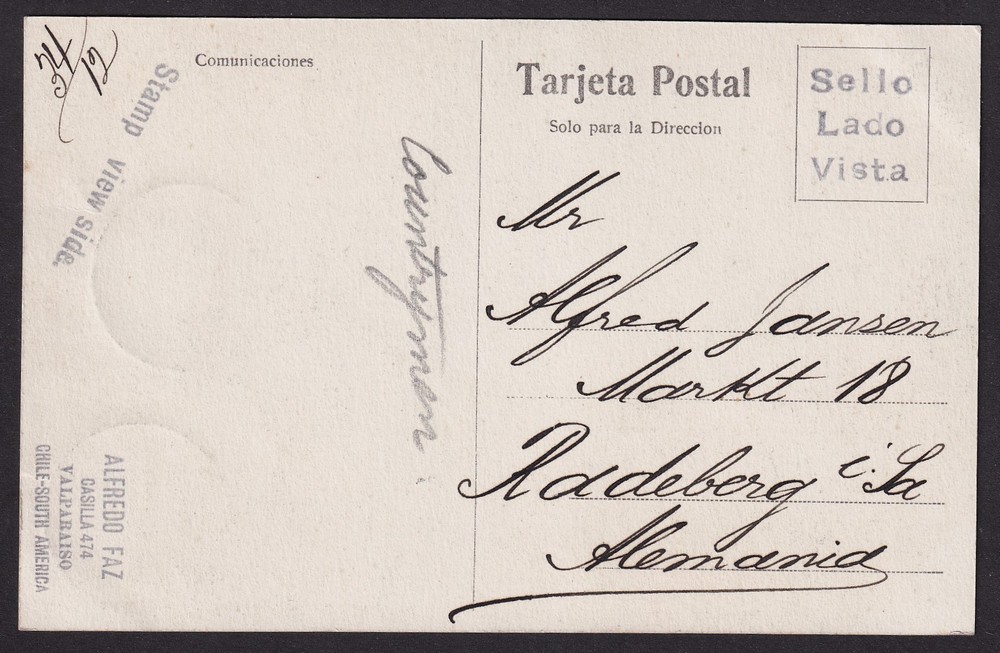 Comunicaciones
Stamp view side.
Countrymen
ALFREDO FAZ
CASILLA 474
VALPARAISO
CHILE-SOUTH AMERICA
Tarjeta Postal
Solo para la Direccion
Sello
Lado
Vista
Mr
Alfred Jansen
Markt 18
Radeberg i. Sa
Alemania